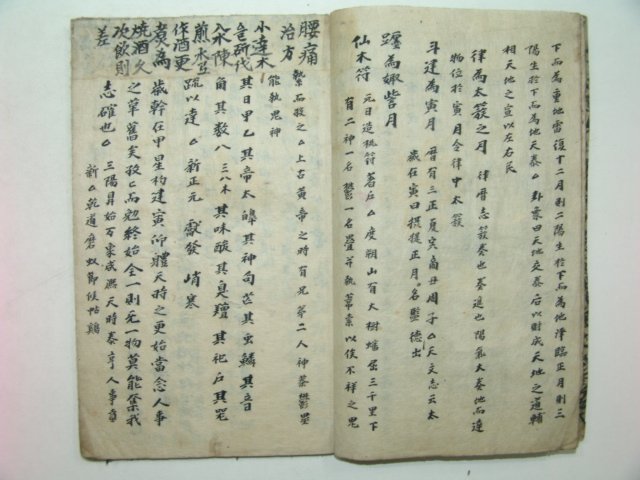 下而為重地雷復十二月則二陽生於下而為地澤臨正月則三
陽生於下而為地天泰△卦象曰天地交泰后以財成天地之道輔
相天地之宜以左右民
律為太簇之月 律曆志簇奏也奏進也陽氣大奏地而達
物位於寅月令律中太簇
斗建為寅月 晉有三正夏寅商丑周子△天文志云太
歲在寅曰攝提正月名監德出
躔為娵訾月
仙木符 元日造桃符著戶△度朔山有大樹蟠屈三千里下
有二神一名鬱一名壘并執葦索以伺不祥之鬼
縶而殺之△上古黃帝之時有兄弟二人神荼鬱壘
能執鬼神
其日甲乙其帝太皞其神句芒其虫鱗其音
角其數八三八木其味酸其臭羶其祀戶其器
疏以達△新正元 獻發 峭寒
歲幹在甲星杓建寅仰體天時之更始當念人事
之草舊矣發△而勉終始全一則无一物莫能奈我
志確也△三陽昇始万象咸熙天時泰亨人事
新△乾道
腰痛
治方
小達木
代
水陳
煎水
作酒更
煮為
燒酒久
次飲則
差